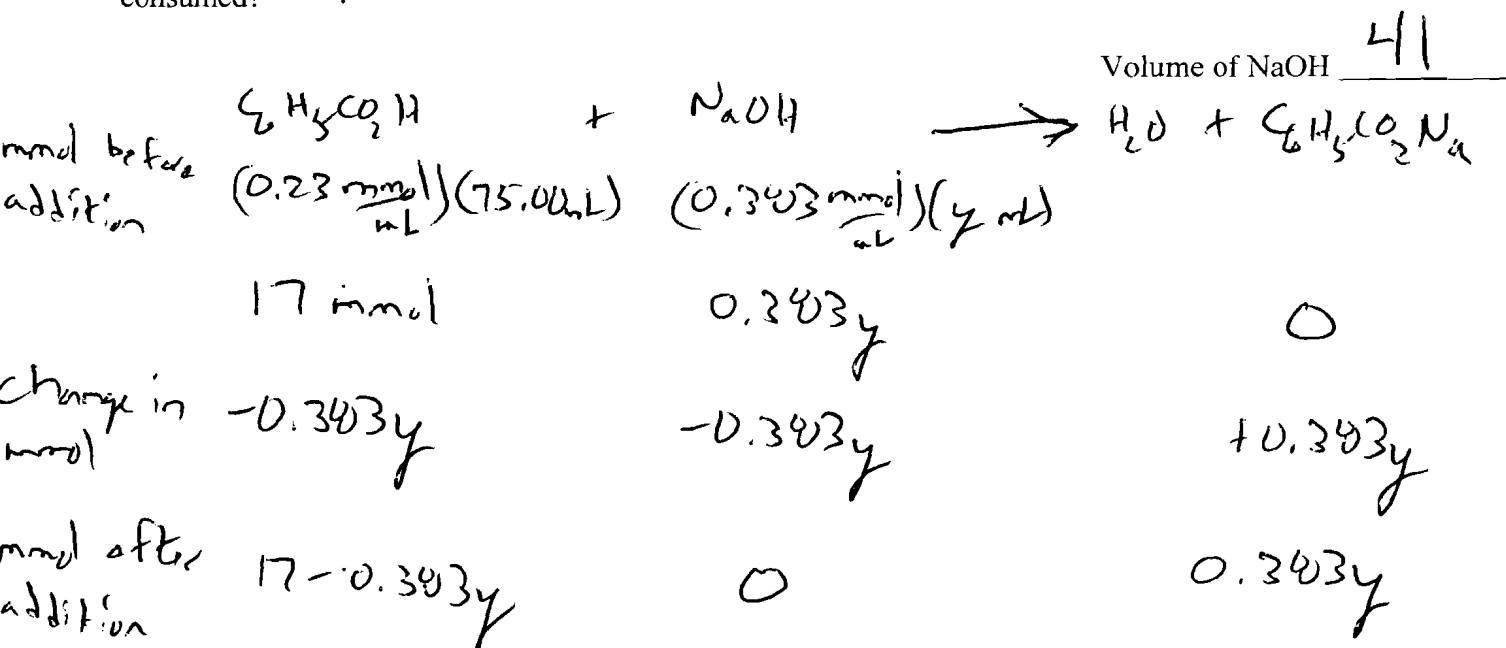 consumed?
Volume of NaOH 41
C6H5CO2H + NaOH → H2O + C6H5CO2Na
mmol before addition (0.23 mmol/mL)(75.00mL) (0.383 mmol/mL)(y mL)
17 mmol 0.383y 0
change in mmol -0.383y -0.383y +0.383y
mmol after addition 17-0.383y 0 0.383y